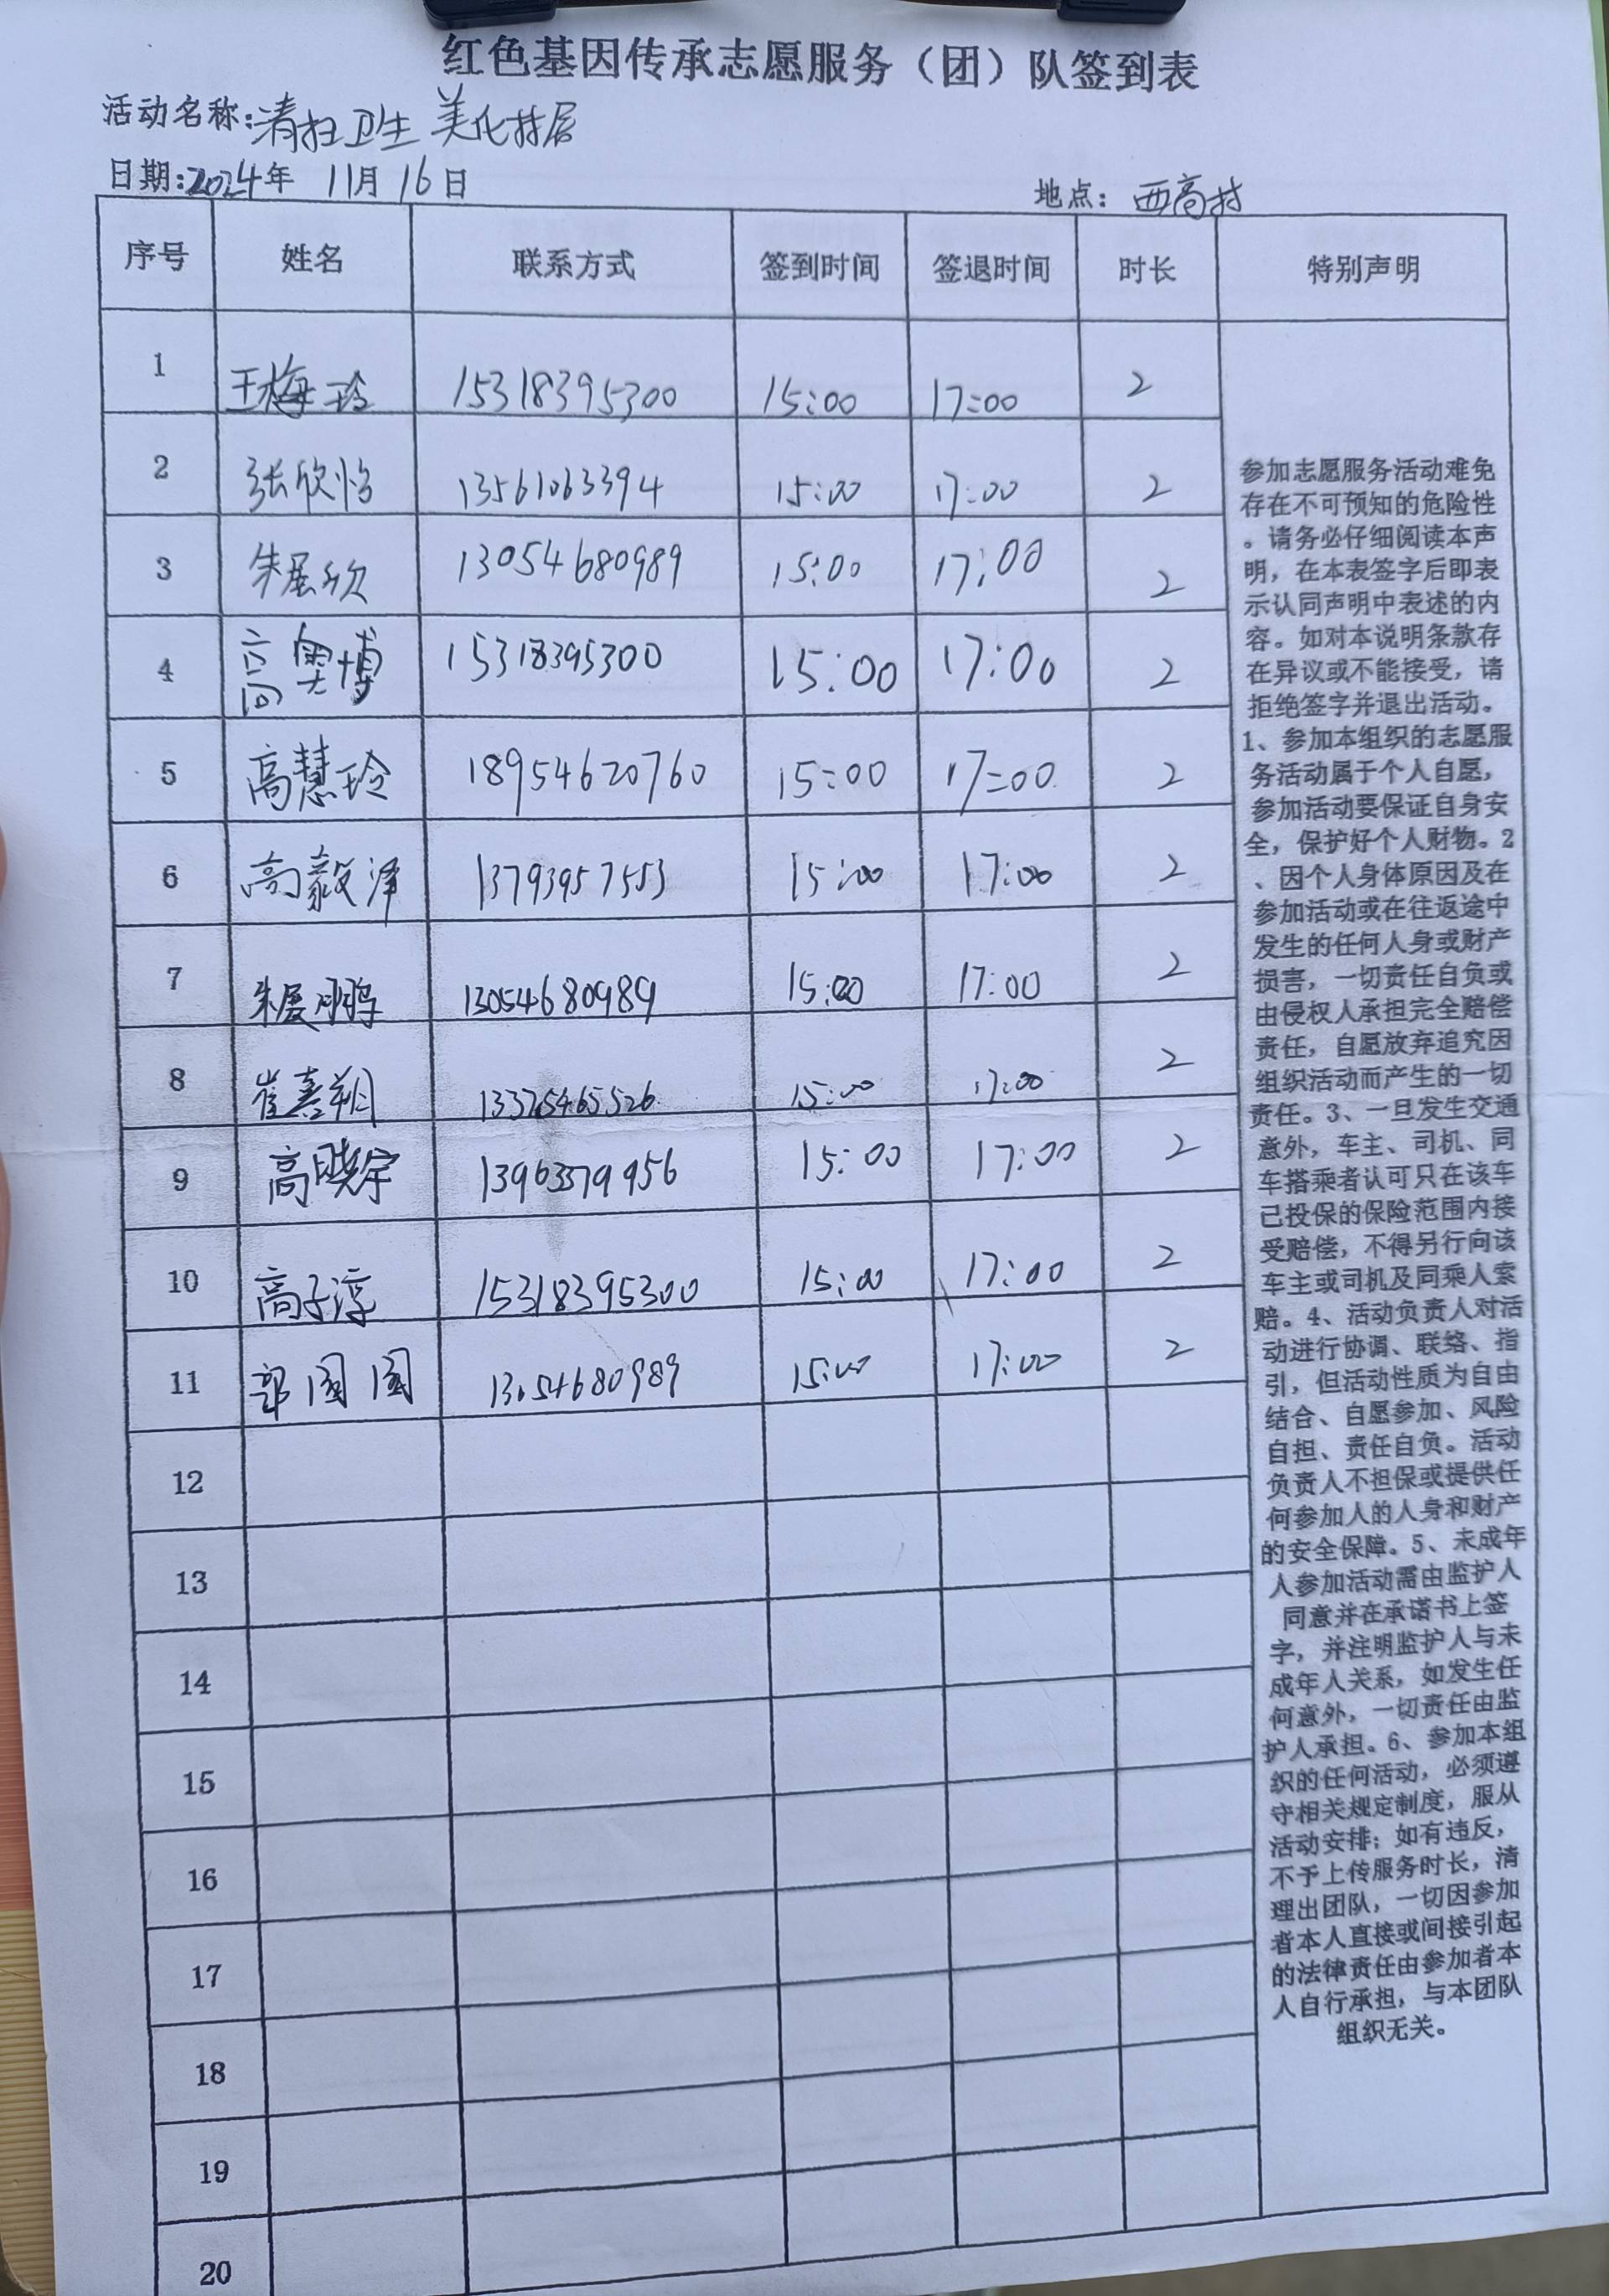 红色基因传承志愿服务（团）队签到表
活动名称:清扫卫生 美化村居
日期:2024年 11月16日
地点：西高村
序号 姓名 联系方式 签到时间 签退时间 时长 特别声明
1 王梅玲 15318395300 15:00 17:00 2
2 张欣怡 13561063394 15:00 17:00 2
3 朱展欣 13054680989 15:00 17:00 2
4 高奥博 15318395300 15:00 17:00 2
5 高慧玲 18954620760 15:00 17:00 2
6 高毅泽 13793957553 15:00 17:00 2
7 朱展鹏 13054680989 15:00 17:00 2
8 崔嘉翔 13325465526 15:00 17:00 2
9 高晓宇 13963379956 15:00 17:00 2
10 高子淳 15318395300 15:00 17:00 2
11 郭圆圆 13054680989 15:00 17:00 2
12
13
14
15
16
17
18
19
20
参加志愿服务活动难免
存在不可预知的危险性
。请务必仔细阅读本声
明，在本表签字后即表
示认同声明中表述的内
容。如对本说明条款存
在异议或不能接受，请
拒绝签字并退出活动。
1、参加本组织的志愿服
务活动属于个人自愿，
参加活动要保证自身安
全，保护好个人财物。2
、因个人身体原因及在
参加活动或在往返途中
发生的任何人身或财产
损害，一切责任自负或
由侵权人承担完全赔偿
责任，自愿放弃追究因
组织活动而产生的一切
责任。3、一旦发生交通
意外，车主、司机、同
车搭乘者认可只在该车
已投保的保险范围内接
受赔偿，不得另行向该
车主或司机及同乘人索
赔。4、活动负责人对活
动进行协调、联络、指
引，但活动性质为自由
结合、自愿参加、风险
自担、责任自负。活动
负责人不担保或提供任
何参加人的人身和财产
的安全保障。5、未成年
人参加活动需由监护人
同意并在承诺书上签
字，并注明监护人与未
成年人关系，如发生任
何意外，一切责任由监
护人承担。6、参加本组
织的任何活动，必须遵
守相关规定制度，服从
活动安排；如有违反，
不予上传服务时长，清
理出团队，一切因参加
者本人直接或间接引起
的法律责任由参加者本
人自行承担，与本团队
组织无关。